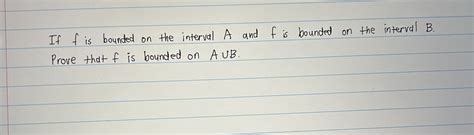 If f is bounded on the interval A and f is bounded on the interval B.
Prove that f is bounded on A ∪ B.